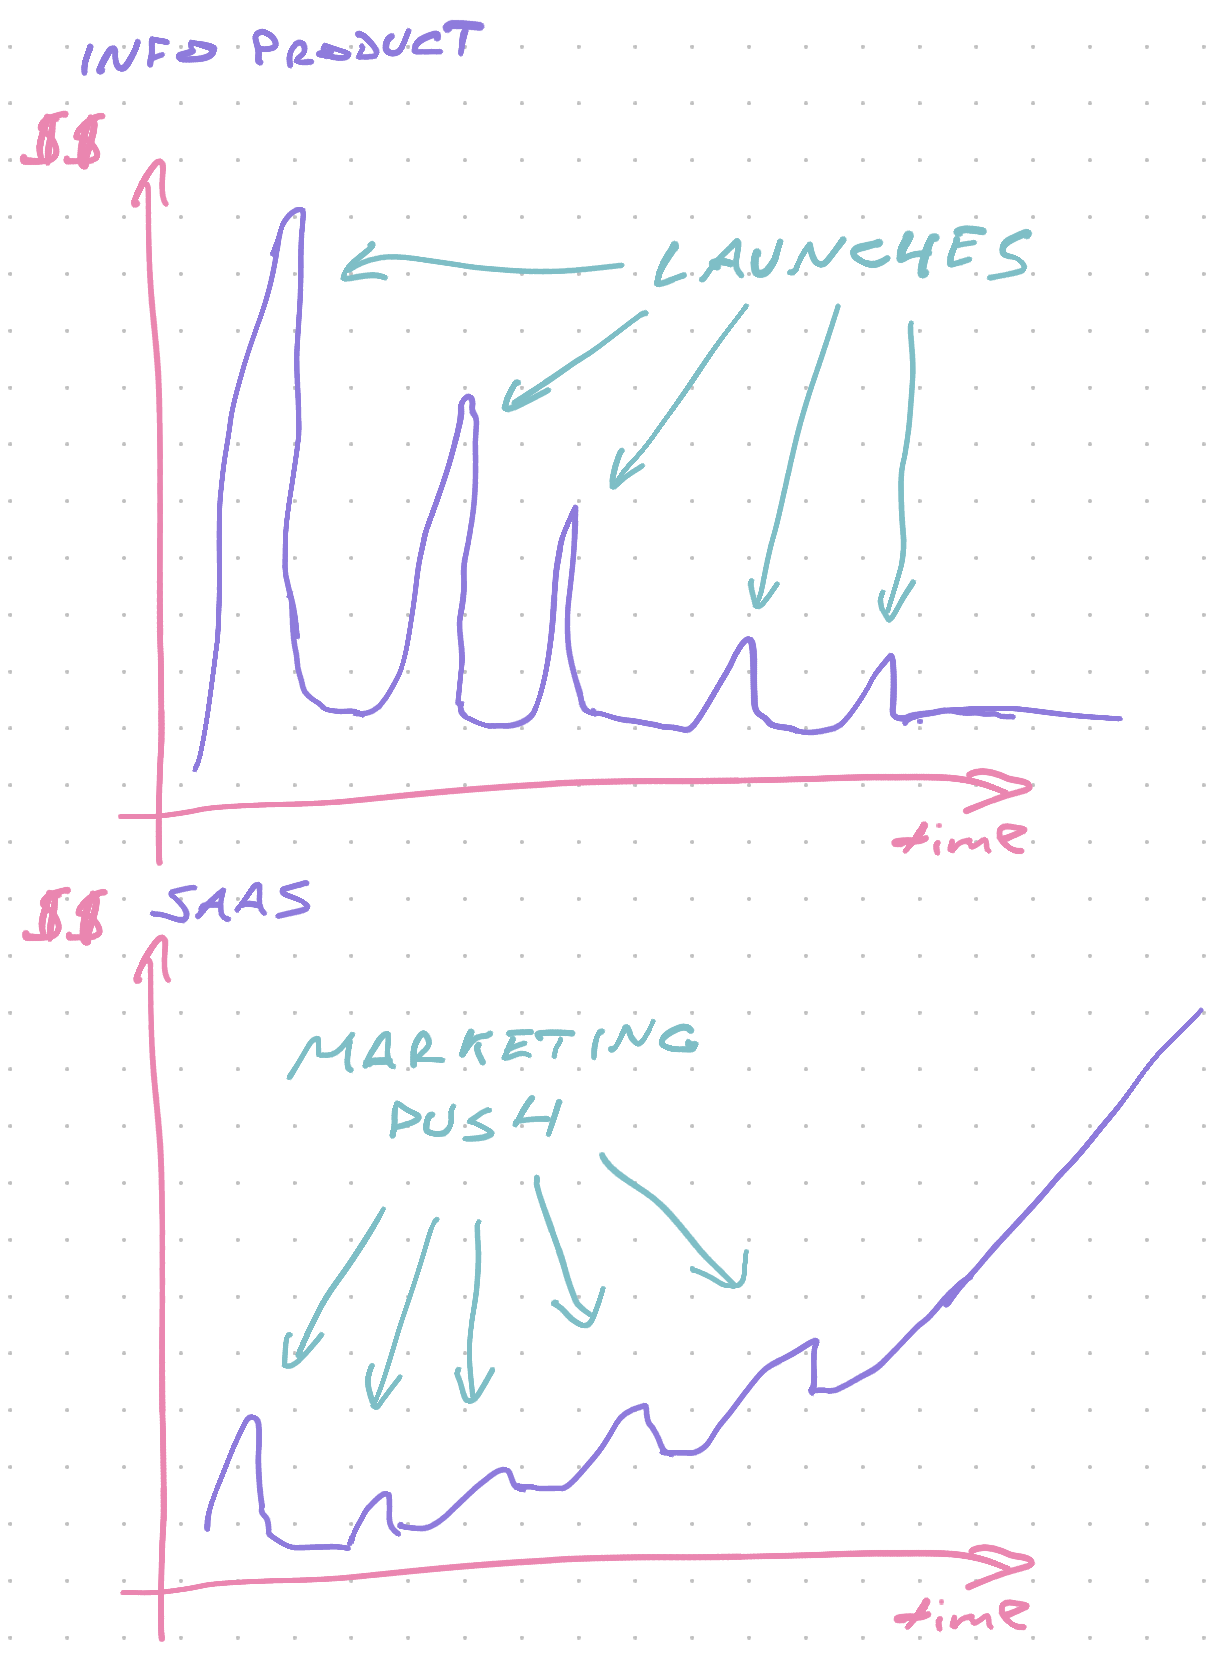 INFO PRODUCT
$$
LAUNCHES
time
$$ SAAS
MARKETING
PUSH
time